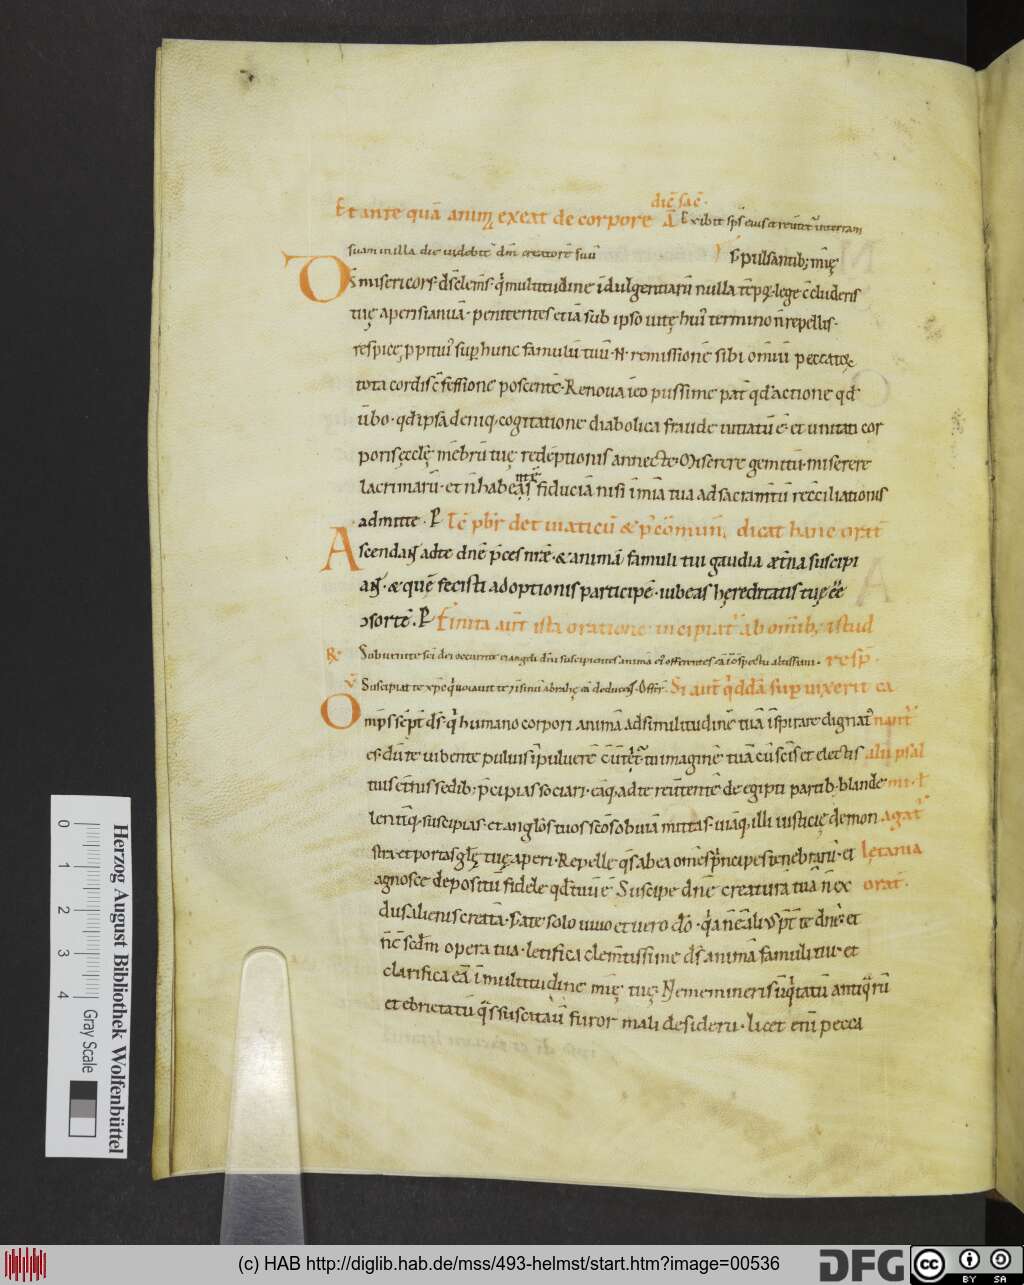 dic̄ sac̄.
Et ante quā anima exeat de corpore A Exibit sp̄s eius et reūtet᷑ in terram
suam in illa die uidebit dn̄m creatorē suū
s. pulsantib; mię
Ds̄ misericors. ds̄ clem̄s. q̄ multitudine idulgentiarū nulla tēpoꝝ lege c̄cluderis
tuę aperis ianuā. penitentes etiā sub ipso uitę hui᷑ termino n̄ repellis.
respice ppitui᷑ sup hunc famulū tuū .N. remissionē sibi omiū peccatoꝝ
tota cordis c̄fessione poscentē. Renoua in eo piissime pat̄ qd actione qd
ūbo. qd ipsa deniq; cogitatione diabolica fraude uitiatū ē. et unitati cor
poris ęcclę mēbrū tuę redēptionis annecte. Miserere gemituū. miserere
lacrimarū. et n̄ habentē fiduciā nisi in mīa tua ad sacram̄tū rec̄ciliationis
admitte. P Tc̄ pbr̄ det uiaticū & p᷑ c̄omuni, dicat hanc oratī
Ascendant ad te dn̄e p̄ces nr̄ę. & animā famuli tui gaudia ęt̄na suscipi
ant. & quē fecisti adoptionis participē. iubeas hęreditatis tuę eē
ↄsortē. P Finita aut̄ ista oratione incipiat᷑ ab omib; istud
R. Subuenite sc̄i dei occurrite angeli dn̄i suscipientes animā ei᷑ offerentes eā in c̄spectu altissimi. resp̄.
V Suscipiat te xp̄c q̄ uocauit te et in sinū abrahę ... deducant. Offer̄. Si aut̄ q̄ddā sup uixerit ca
Omps sēpit̄ ds̄. q̄ humano corpori animā ad similitudinē tuā īspirare dignat᷑ nant᷑
es. dū te iubente puluis ī puluerē c̄ūtet᷑. tu imaginē tuā cū sc̄is et electis alii psal
tuis et̄nis sedib; p̄cipias sociari. eāq; ad te reūtentē de egipti partib; blande mi. t̄
lenit̄q; suscipias. et angl̄os tuos sc̄os obuiā mittas. uiāq; illi iusticię demon agat᷑
stra. et portas gl̄ę tuę aperi. Repelle q̄s ab ea om̄es p̄ncipes tenebrarū. et lętania
agnosce depositū fidele qd tuū ē Suscipe dn̄e creaturā tuā n̄ ex orat̄.
dus alienis creatā. s; a te solo uiuo et uero dō. q̄a n̄ ē ali᷑ p̄t te dn̄e. et
n̄ ē scdm opera tua. letifica clem̄tissime ds̄ animā famuli tui. et
clarifica eā ī multitudine mię tuę. Ne memineris iniq̄tatū antiq̄rū
et ebrietatū q̄s suscitauit furor mali desiderii. licet eni peccā
Herzog August Bibliothek Wolfenbüttel
0 1 2 3 4 Gray Scale
(c) HAB http://diglib.hab.de/mss/493-helmst/start.htm?image=00536
DFG
cc
BY SA